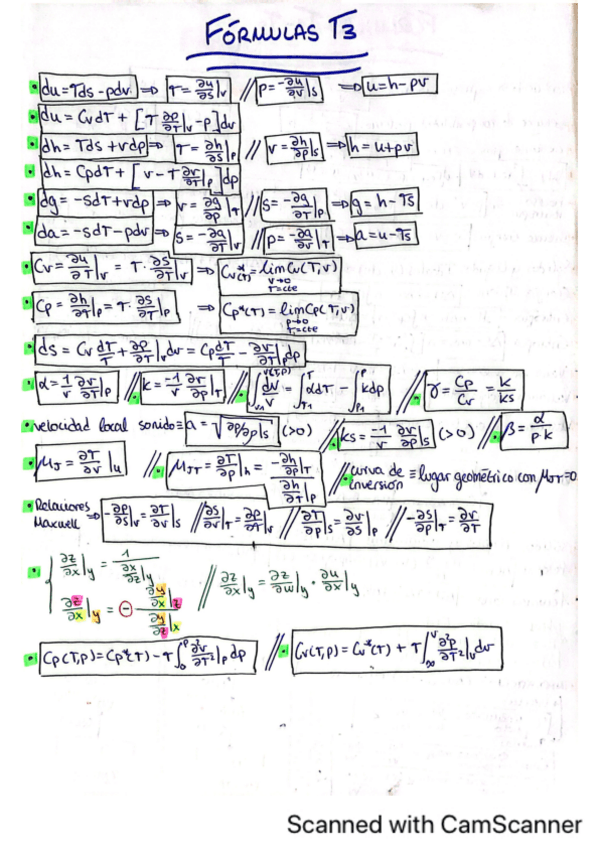 FÓRMULAS T3
• du = Tds - pdv ⇒ T = ∂u/∂s|v // p = -∂u/∂v|s ⇒ u = h - pv
• du = Cv dT + [T ∂p/∂T|v - p] dv
• dh = Tds + vdp ⇒ T = ∂h/∂s|p // v = ∂h/∂p|s ⇒ h = u + pv
• dh = Cp dT + [v - T ∂v/∂T|p] dp
• dg = -sdT + vdp ⇒ v = ∂g/∂p|T // s = -∂g/∂T|p ⇒ g = h - Ts
• da = -sdT - pdv ⇒ s = -∂a/∂T|v // p = -∂a/∂v|T ⇒ a = u - Ts
• Cv = ∂u/∂T|v = T · ∂s/∂T|v ⇒ Cv*(T) = lim Cv(T,v) v→∞ T=cte
• Cp = ∂h/∂T|p = T · ∂s/∂T|p ⇒ Cp*(T) = lim Cp(T,v) p→0 T=cte
• ds = Cv dT/T + ∂p/∂T|v dv = Cp dT/T - ∂v/∂T|p dp
• α = 1/v ∂v/∂T|p // • k = -1/v ∂v/∂p|T // • ∫ dv/v = ∫ αdT - ∫ kdp // • γ = Cp/Cv = k/ks
• velocidad local sonido ≡ a = √∂p/∂ρ|s (>0) // • ks = -1/v ∂v/∂p|s (>0) // • β = α/p·k
• μJ = ∂T/∂v|u // • μJT = ∂T/∂p|h = -∂h/∂p|T / ∂h/∂T|p // • curva de inversión ≡ lugar geométrico con μJT = 0
• Relaciones Maxwell ⇒ -∂p/∂s|v = ∂T/∂v|s // ∂s/∂v|T = ∂p/∂T|v // ∂T/∂p|s = ∂v/∂s|p // -∂s/∂p|T = ∂v/∂T
• { ∂z/∂x|y = 1 / ∂x/∂z|y // ∂z/∂x|y = ∂z/∂w|y · ∂u/∂x|y
∂z/∂x|y = - ∂y/∂x|z / ∂y/∂z|x
• Cp(T,p) = Cp*(T) - T ∫₀ᵖ ∂²v/∂T²|p dp // • Cv(T,p) = Cv*(T) + T ∫∞ᵛ ∂²p/∂T²|v dv
Scanned with CamScanner